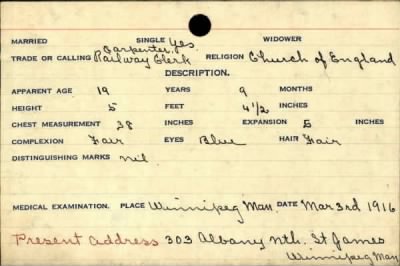 MARRIED SINGLE Yes. WIDOWER
Carpenter
TRADE OR CALLING Railway Clerk RELIGION Church of England
DESCRIPTION.
APPARENT AGE 19 YEARS 9 MONTHS
HEIGHT 5 FEET 4½ INCHES
CHEST MEASUREMENT 38 INCHES EXPANSION 5 INCHES
COMPLEXION Fair EYES Blue HAIR Fair
DISTINGUISHING MARKS nil
MEDICAL EXAMINATION. PLACE Winnipeg Man. DATE Mar 3rd 1916
Present address 303 Albany Nth. St James
Winnipeg Man